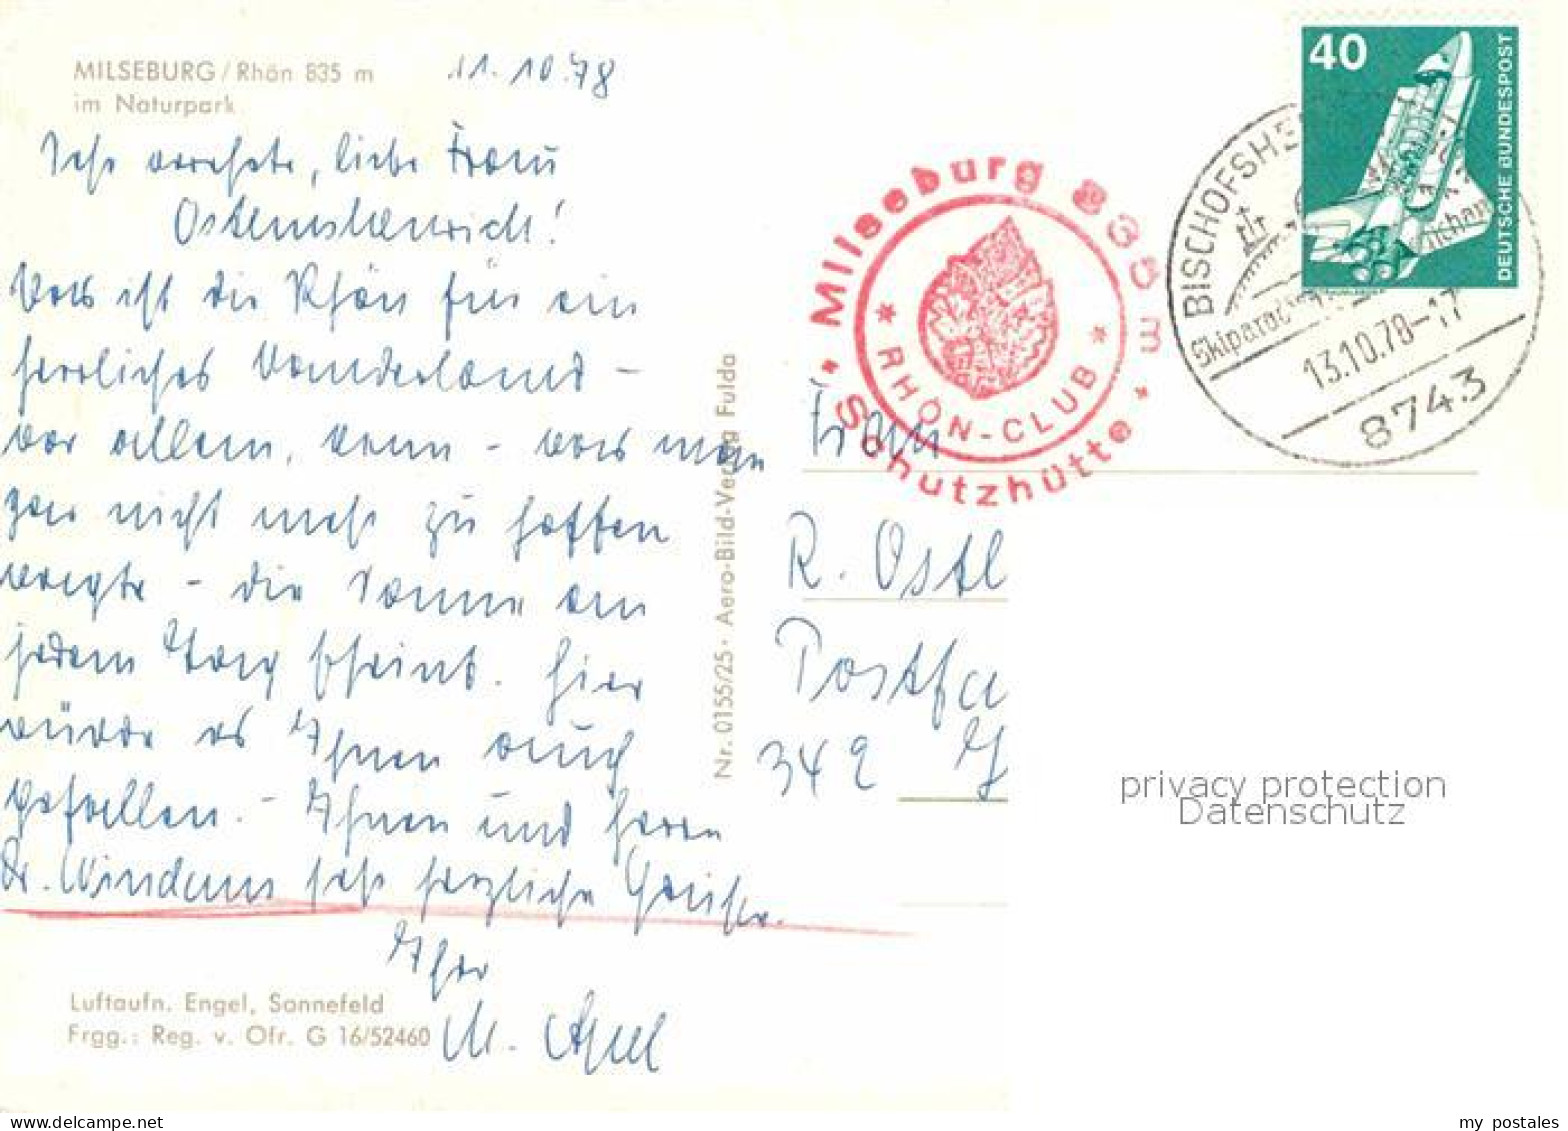 MILSEBURG / Rhön 835 m
im Naturpark
11.10.78
Sehr verehrte, liebe Frau
Was ist die Rhön für ein
herrliches Wanderland -
vor allem, wenn - was man
gar nicht mehr zu hoffen
wagte - die Sonne an
jedem Tag scheint. Hier
würde es Ihnen auch
gefallen. - Ihnen und Herrn
Dr. sehr herzliche Grüße.
Ihr
M.
Luftaufn. Engel, Sonnefeld
Frgg.: Reg. v. Ofr. G 16/52460
Nr. 0155/25 · Aero-Bild-Verlag Fulda
* Milseburg 835 m *
Schutzhütte
* RHÖN-CLUB *
40
DEUTSCHE BUNDESPOST
BISCHOFSHE
Skiparad
13.10.78-17
8743
Frau
R. Ostl
Postfa
342 G
privacy protection
Datenschutz
my postales